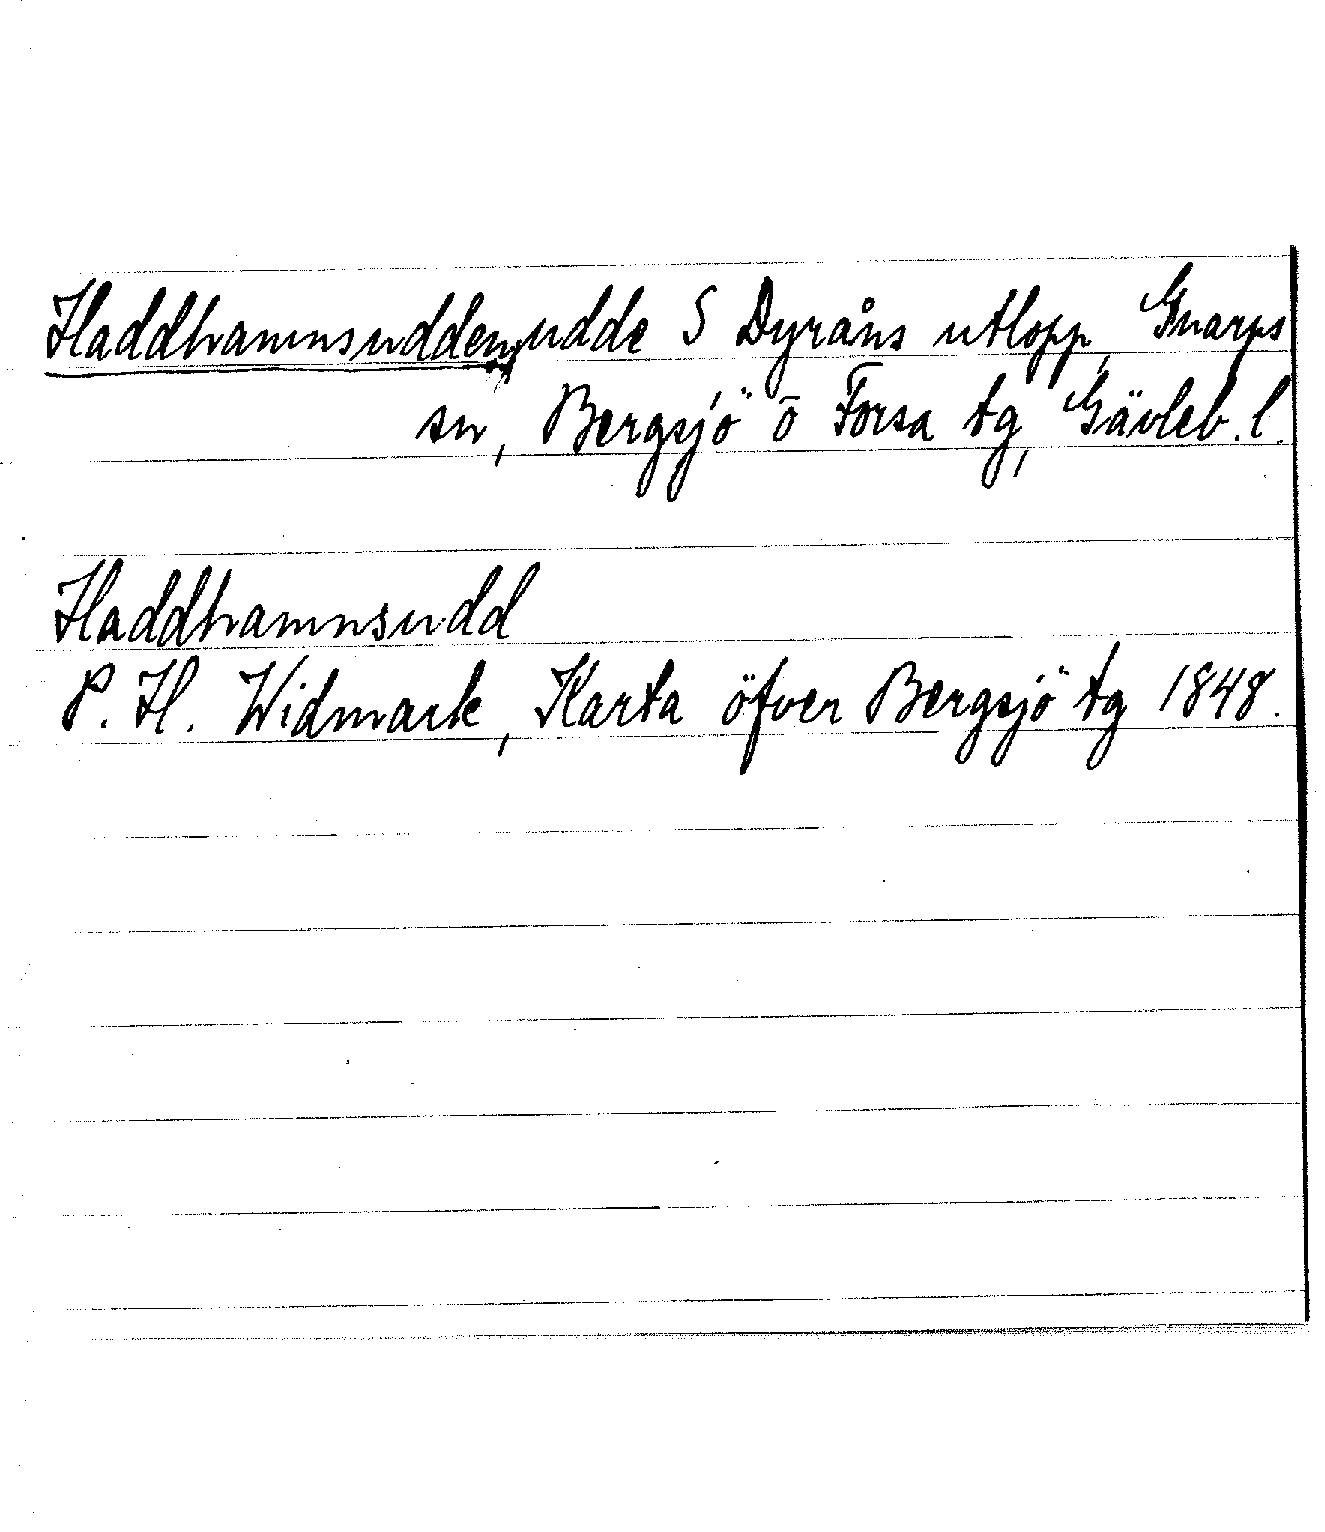 Haddhamnsudden, udde S Dyråns utlopp, Gnarps
sn, Bergsjö o Forsa tg, Gävleb. l.
Haddhamnsudd
P. H. Widmark, Karta öfver Bergsjö tg 1848.